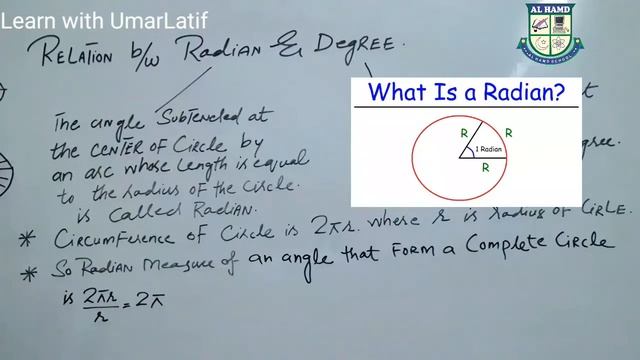 Learn with UmarLatif
AL HAMD
RELATION b/w RADIAN & DEGREE.
What Is a Radian?
R
R
1 Radian
R
The angle Subtended at
the CENTER of Circle by
an arc whose length is equal
to the radius of the circle.
is called RADIAN.
* CIRCUMFERENCE OF CIRCLE IS 2πr. where r is radius of CIRLE.
* So RADIAN MEASURE of an angle that FORM a Complete Circle
is 2πr/r = 2π